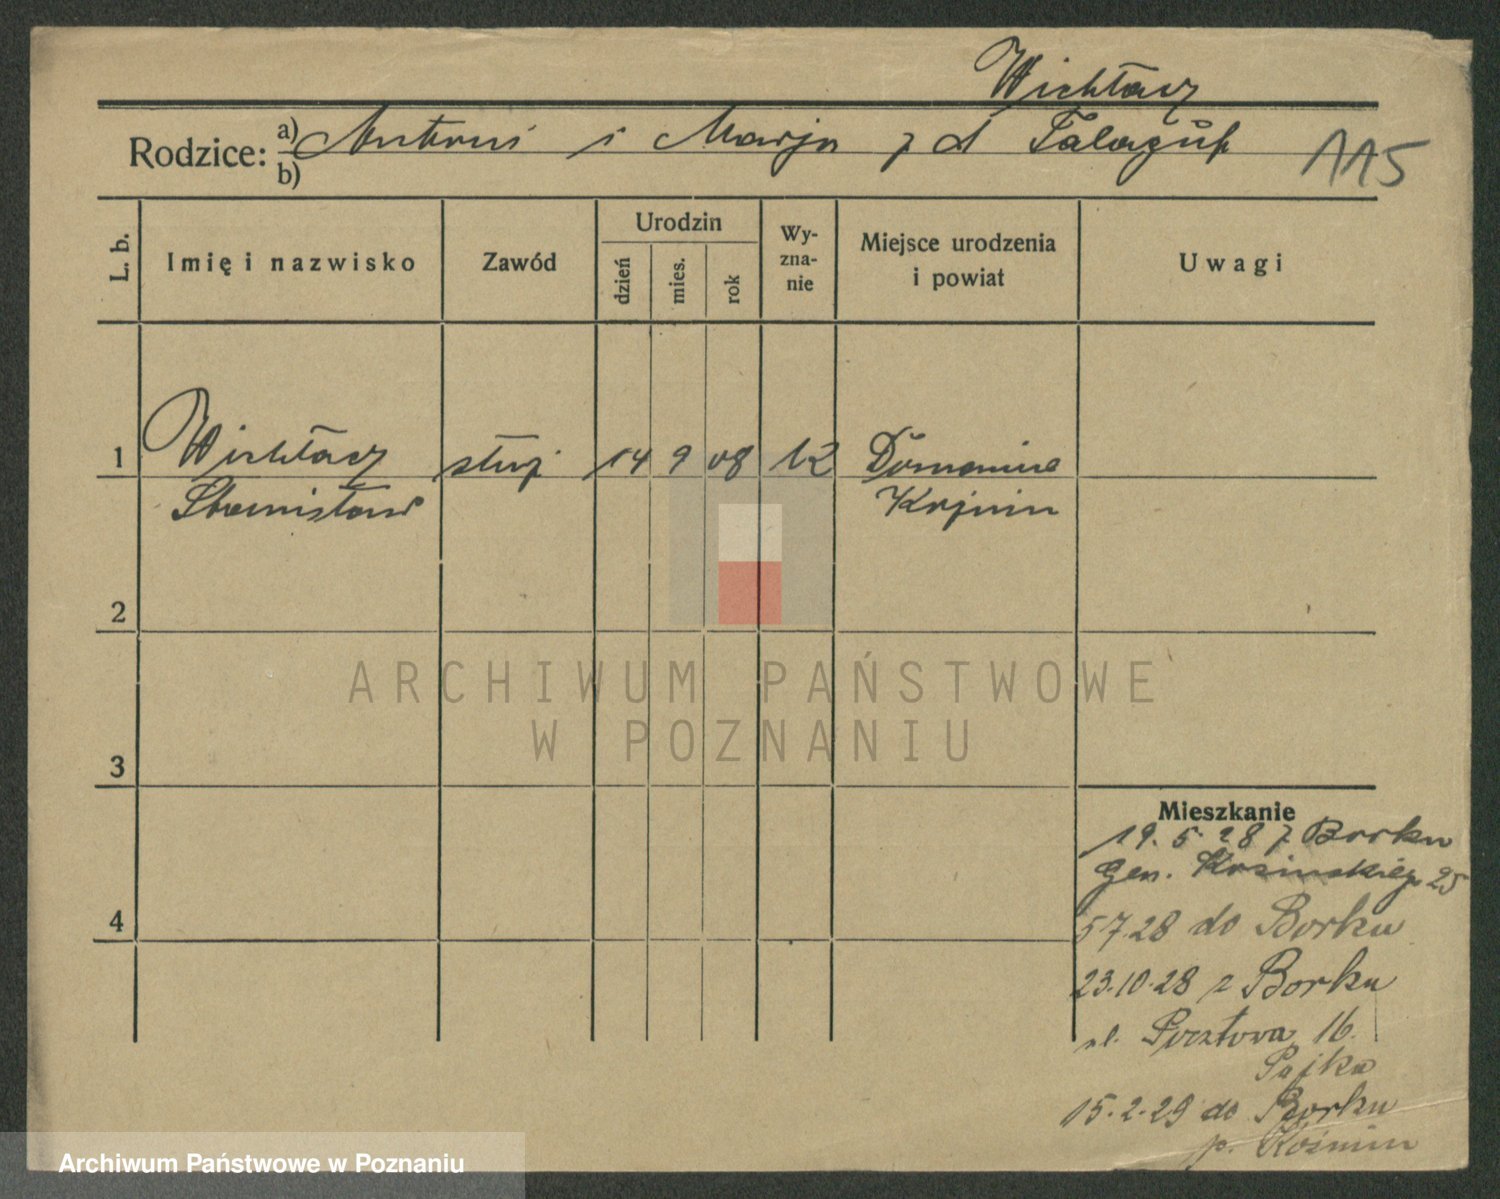 Wichłacz
Rodzice: a) Antoni i Marja z d
b)
115
L. b.
Imię i nazwisko
Zawód
Urodzin
dzień
mies.
rok
Wy-
zna-
nie
Miejsce urodzenia
i powiat
Uwagi
1 Wichłacz służ 14 9 08
Stanisław
2
3
4
ARCHIWUM PAŃSTWOWE
W POZNANIU
Mieszkanie
19.5.28 z Borku
gen. Kosinskiego 25
5 7.28 do Borku
23.10.28 z Borku
ul. Pocztowa 16.
Pajka
15.2.29 do Borku
p. Koźmin
Archiwum Państwowe w Poznaniu